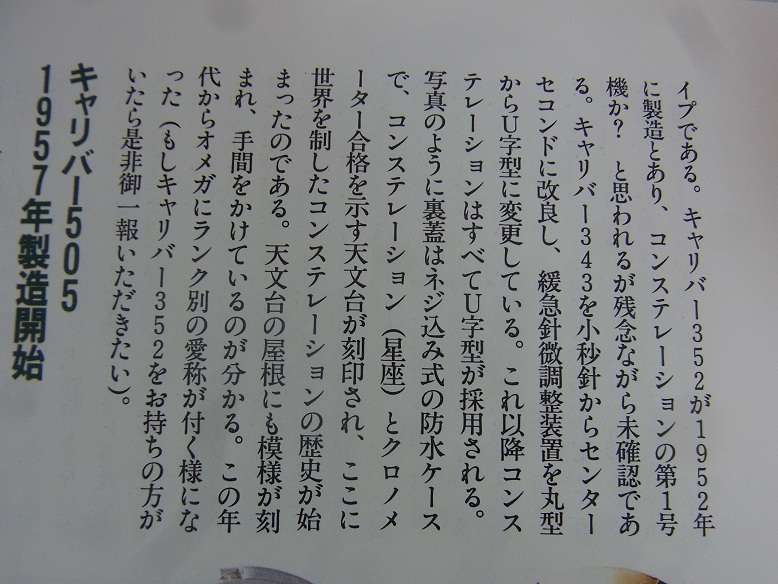 イプである。キャリバー352が1952年
に製造とあり、コンステレーションの第1号
機か? と思われるが残念ながら未確認であ
る。キャリバー343を小秒針からセンター
セコンドに改良し、緩急針微調整装置を丸型
からU字型に変更している。これ以降コンス
テレーションはすべてU字型が採用される。
写真のように裏蓋はネジ込み式の防水ケース
で、コンステレーション(星座)とクロノメ
ーター合格を示す天文台が刻印され、ここに
世界を制したコンステレーションの歴史が始
まったのである。天文台の屋根にも模様が刻
まれ、手間をかけているのが分かる。この年
代からオメガにランク別の愛称が付く様にな
った(もしキャリバー352をお持ちの方が
いたら是非御一報いただきたい)。
キャリバー505
1957年製造開始